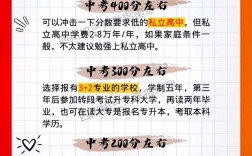 中考400分左右
可以冲击一下分数要求低的私立高中，但私
立高中学费2-8万年/年，如果家庭条件一
般，不太建议勉强上私立高中。
中考300分左右
选择报有3+2专业的学校，学制五年，第三
年后参加转段考试升专科大学，再读两年毕
业，也可在读大专是报名专升本，考取本科
学历。
中考200分左右